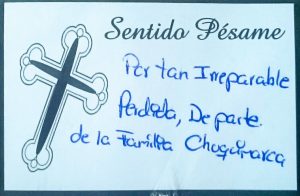 Sentido Pésame
Por tan Irreparable
Perdida, De parte.
de la Familia Choquimarca